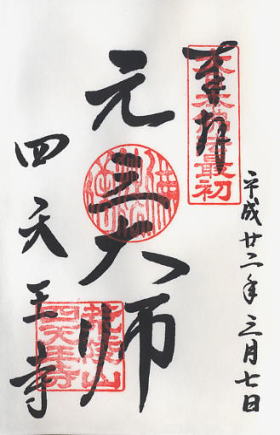 奉拝
大日本佛法最初
平成廿二年三月七日
元三大師
四天王寺
荒陵山
四天王寺